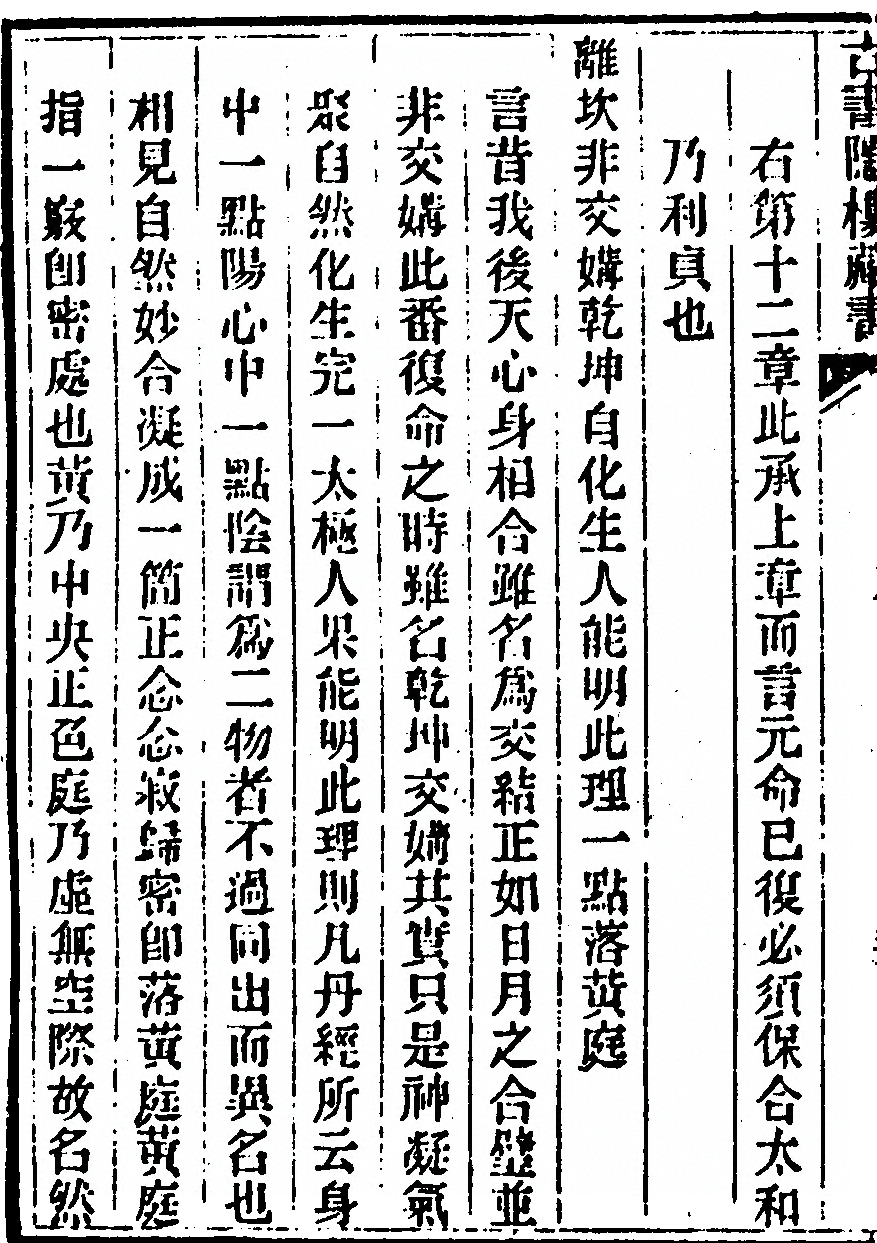 古書隱樓藏書
右第十二章此承上章而言元命已復必須保合太和
乃利貞也
離坎非交媾乾坤自化生人能明此理一點落黃庭
言昔我後天心身相合雖名爲交結正如日月之合璧並
非交媾此番復命之時雖名乾坤交媾其實只是神凝氣
聚自然化生完一太極人果能明此理則凡丹經所云身
中一點陽心中一點陰謂爲二物者不過同出而異名也
相見自然妙合凝成一箇正念念寂歸密卽落黃庭黃庭
指一竅卽密處也黃乃中央正色庭乃虛無空際故名然